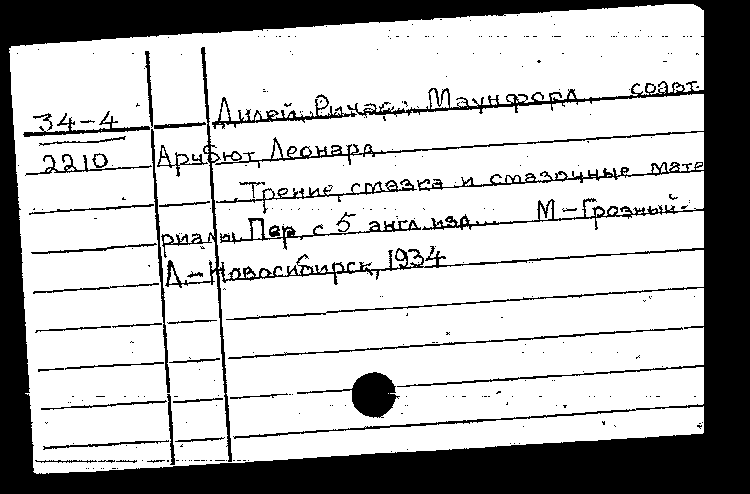 34-4 Дилей, Ричард Маунфорд, соавт.
2210 Арчбют, Леонард
Трение, смазка и смазочные мате
риалы. Пер. с 5 англ. изд... М-Грозный-
Л.-Новосибирск, 1934